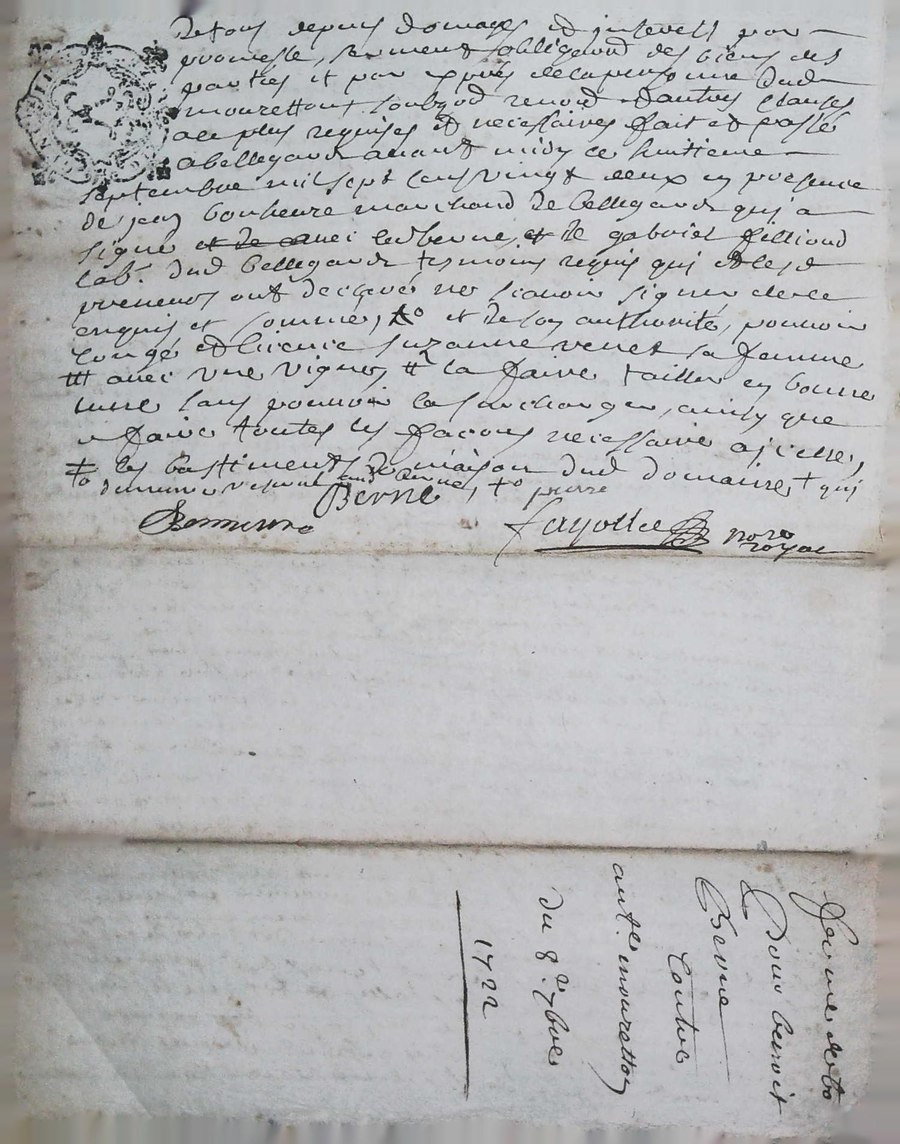 De tous depens domages et interests par
promesse, serment obligaõn des biens des
parties et par exprès de la personne dud
mouretton soubz od renond et autres clauses
a ce plus requises et necessaires fait et passé
a bellegarde avant midy ce huitieme
septembre mil sept cens vingt deux en presence
de jean bonheure marchand de bellegarde qui a
signé avec led berne, et de gabriel filliond
lab.r dud bellegarde tesmoins requis qui et lesd
preneurs ont declaré ne scavoir signer de ce
enquis et sommé, et de son authorité, pouvoir
congé et licence suzanne venet sa femme
avec une vigne, la faire tailler en bonne
lune sans pouvoir la surcharger, ainsy que
faire toutes les façons necessaire a icelle,
les bastiments de maison dud domaine qui
aud berne, pierre
Berne
Bonneure
Fayolle no.re
royal
ferme de
pour benoit
Berne
Contre
ant.e mouretton
du 8.e 7bre
1722